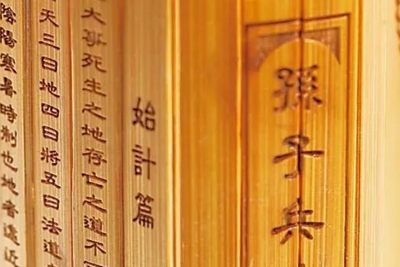 孫子兵
始計篇
大事死生之地存亡之道不
天三曰地四曰將五曰法道
陰陽寒暑時制也地者遠近